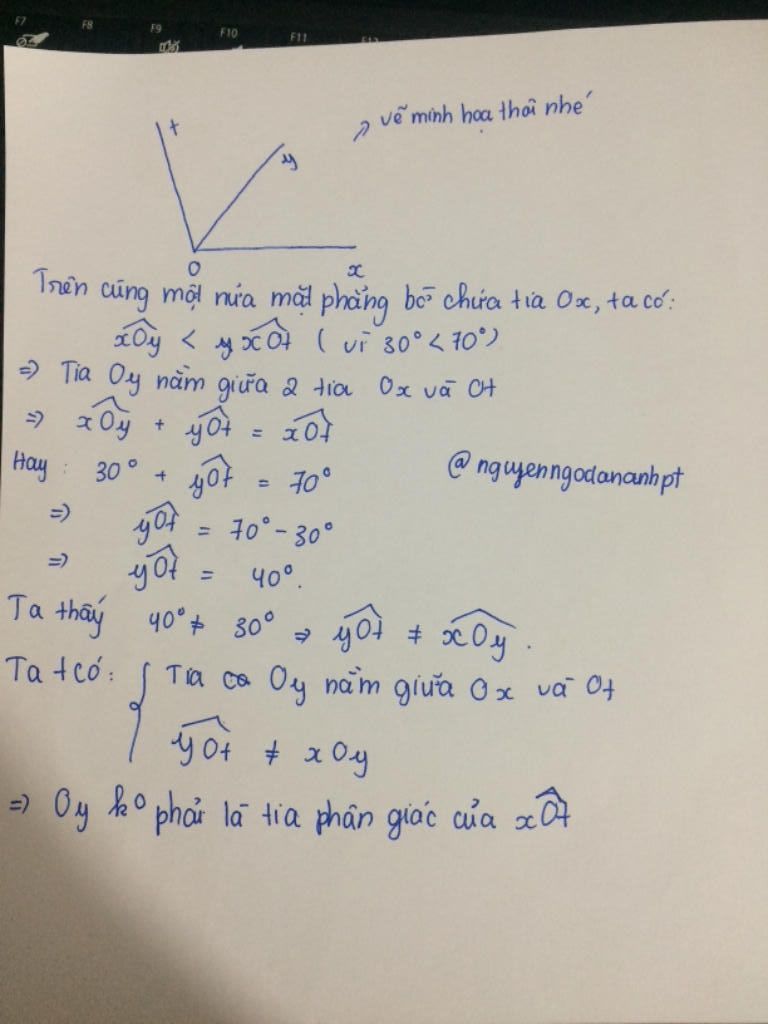 F7 F8 F9 F10 F11 F12
vẽ minh họa thôi nhé
t
y
O
x
Trên cùng một nửa mặt phẳng bờ chứa tia Ox, ta có:
xÔy < y xÔt ( vì 30° < 70°)
=> Tia Oy nằm giữa 2 tia Ox và Ot
=> xÔy + yÔt = xÔt
Hay : 30° + yÔt = 70°
@nguyenngodananhpt
=> yÔt = 70° - 30°
=> yÔt = 40°.
Ta thấy 40° ≠ 30° => yÔt ≠ xÔy .
Ta tcó : { Tia ca Oy nằm giữa Ox và Ot
yÔt ≠ xOy
=> Oy ko phải là tia phân giác của xÔt